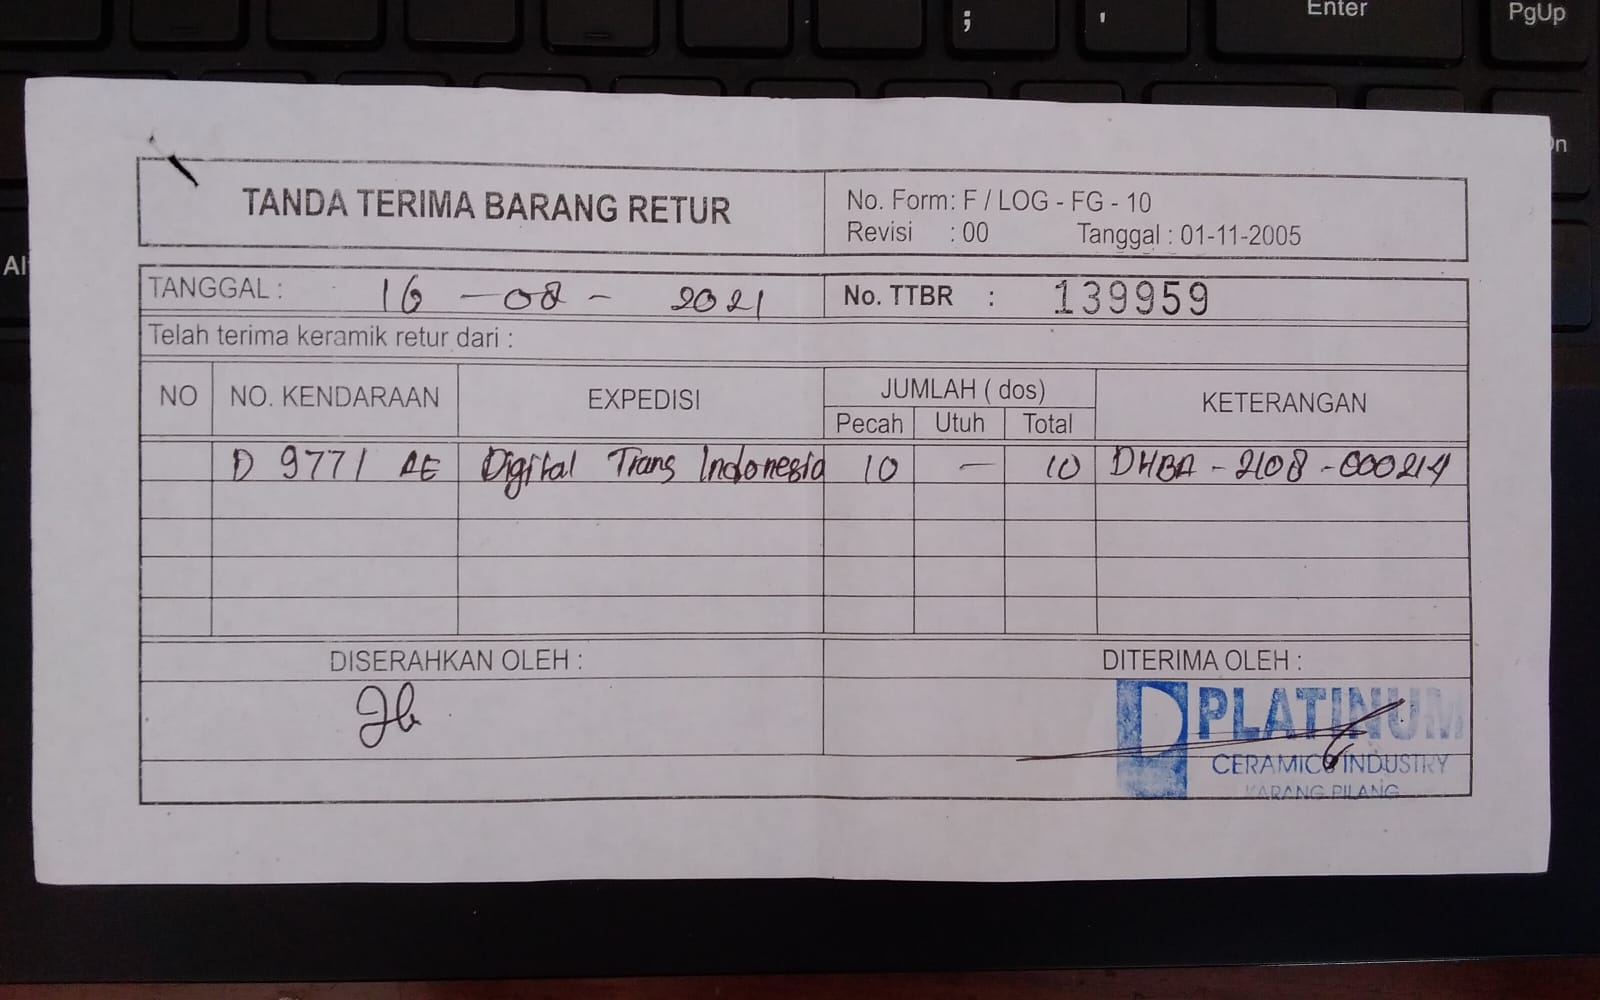 ; ' Enter PgUp
TANDA TERIMA BARANG RETUR
No. Form: F / LOG - FG - 10
Revisi : 00 Tanggal : 01-11-2005
TANGGAL : 16 - 08 - 2021 No. TTBR : 139959
Telah terima keramik retur dari :
NO NO. KENDARAAN EXPEDISI JUMLAH ( dos) KETERANGAN
Pecah Utuh Total
D 9771 AE Digital Trans Indonesia 10 - 10 DHBA - 2108 - 000214
DISERAHKAN OLEH : DITERIMA OLEH :
PLATINUM
CERAMICS INDUSTRY
KARANG PILANG